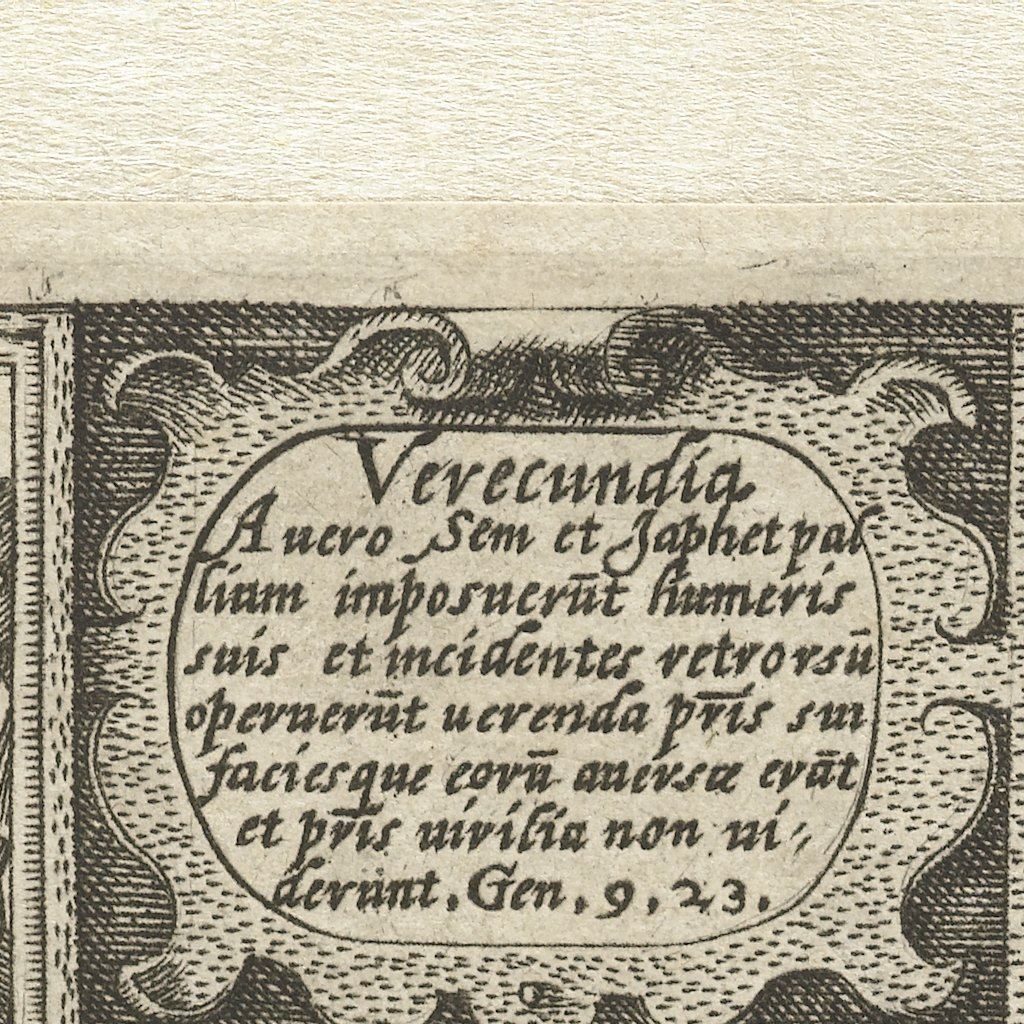 Verecundia
A uero Sem et Japhet pal
lium imposuerūt humeris
suis et incidentes retrorsū
operuerūt uerenda pr̄is sui
faciesque eorū auersæ erāt
et pr̄is uirilia non ui-
derunt. Gen. 9. 23.